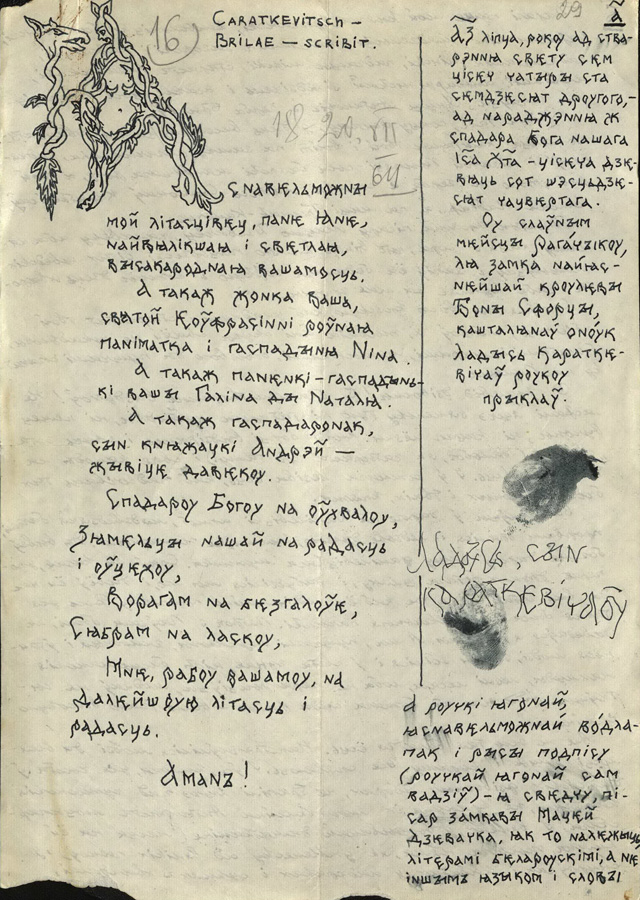 CARATKEVITSCH –
BRILAE – SCRIBIT.
16
18-20.VII
64
Яснавельможны
мой літасцівец, пане Яне,
найвялікшая і светлая,
высакародная вашамосць.
А такаж жонка ваша,
святой Еоуфрасінні роўная
паніматка і гаспадыня Nina.
А такаж паненкі – гаспадынь-
кі вашы Галіна ды Наталя.
А такаж гаспадаронак,
сын княжацкі Андрэй –
жывіце давекоу.
Спадароу Богоу на оухвалоу,
Зямельцы нашай на радасць
і оуцехоу,
Ворагам на безгалоўе,
Сябрам на ласкоу,
Мне, рабоу вашамоу, на
далейшоую літасць і
радасць.
Аманъ!
29
а
Аз ліпца, рокоу ад ства-
рэння свету сем
цісеч чатыры ста
семдзесят дроугого, –
ад нараджэння ж
спадара Бога нашага
Іса Хта – цісеча дзе-
вяць сот шэсцьдзе-
сят чацвертага.
Оу слаўным
мейсцы Рагачыкоу,
ля замка найяс-
нейшай кроулевы
Боны Сфорцы,
кашталянаў оноук
Ладысь Караткe-
вічаў роукоу
прыклаў.
Ладзсь, сын
Караткевічаоў
А роучкі ягонай,
яснавельможнай водла-
пак і рысы подпісу
(роучкай ягонай сам
вадзіў) – я сведчу, пі-
сар замкавы Мацей
Дзевачка, як то належыць
літерамі белароускімі, а не
іншымъ языком і словы